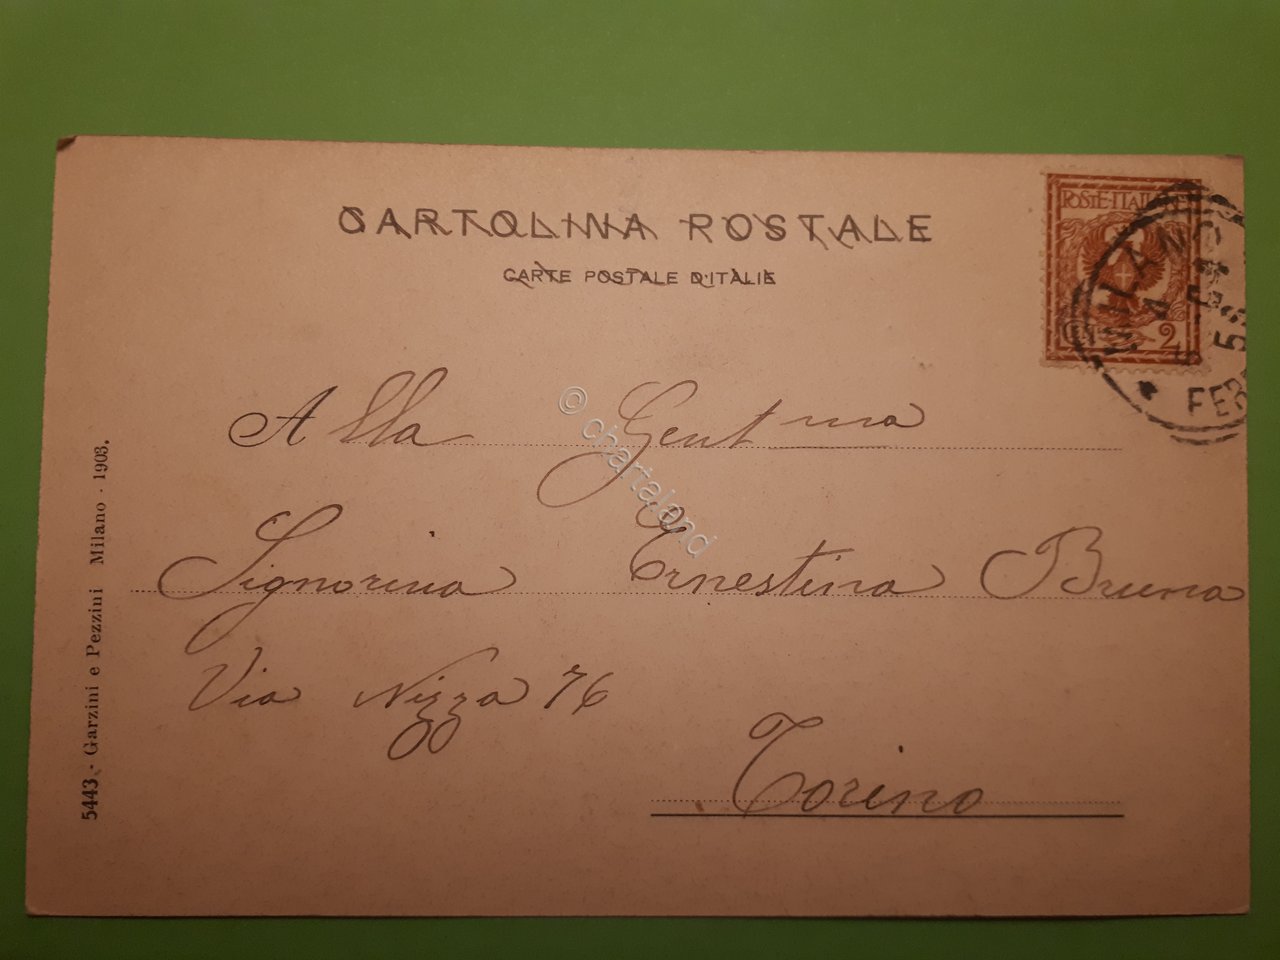 CARTOLINA POSTALE
CARTE POSTALE D'ITALIE
POSTE ITALIANE
CEN 2
MILANO
4
5
FER
Alla Gent ma
Signorina Ernestina Bruna
Via Nizza 76
Torino
5443 - Garzini e Pezzini Milano - 1903.
© chartaland